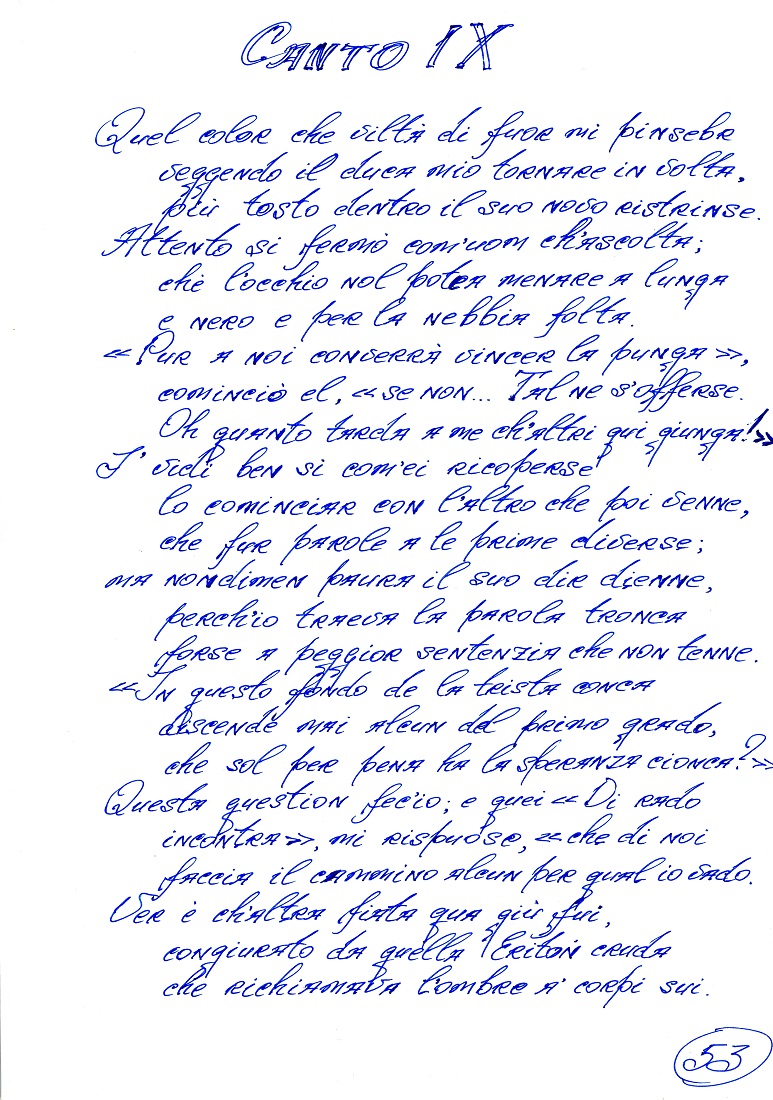 CANTO IX
Quel color che viltà di fuor mi pinsebr
veggendo il duca mio tornare in volta,
più tosto dentro il suo novo ristrinse.
Attento si fermò com'uom ch'ascolta;
chè l'occhio nol potea menare a lunga
e nero e per la nebbia folta.
«Pur a noi converrà vincer la punga»,
cominciò el, «se non... Tal ne s'offerse.
Oh quanto tarda a me ch'altri qui giunga!»
I' vidi ben si com'ei ricoperse
lo cominciar con l'altro che poi venne,
che fur parole a le prime diverse;
ma nondimen paura il suo dir dienne,
perch'io traeva la parola tronca
forse a peggior sentenzia che non tenne.
«In questo fondo de la trista conca
discende mai alcun del primo grado,
che sol per pena ha la speranza cionca?»
Questa question fec'io; e quei «Di rado
incontra», mi rispuose, «che di noi
faccia il cammino alcun per qual io vado.
Ver è ch'altra fiata qua giù fui,
congiurato da quella Eritón cruda
che richiamava l'ombre a' corpi sui.
53